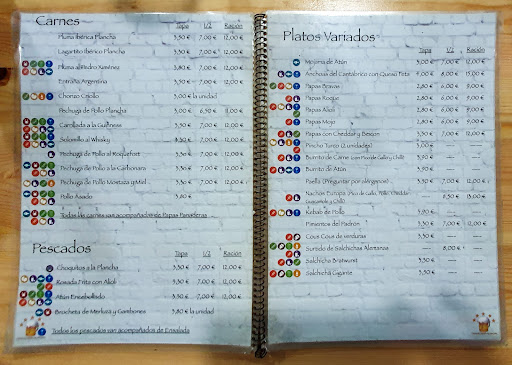 Carnes
Tapa 1/2 Ración
Pluma Ibérica Plancha 3,50 € 7,00 € 12,00 €
Lagartito Ibérico Plancha 3,50 € 7,00 € 12,00 €
Pluma al Pedro Ximénez 3,80 € 7,00 € 12,00 €
Entraña Argentina 3,50 € 7,00 € 12,00 €
Chorizo Criollo 3,00 € la unidad
Pechuga de Pollo Plancha 3,00 € 6,50 € 11,00 €
Carrillada a la Guinness 3,50 € 7,00 € 12,00 €
Solomillo al Whisky 3,50 € 7,00 € 12,00 €
Pechuga de Pollo al Roquefort 3,50 € 7,00 € 12,00 €
Pechuga de Pollo a la Carbonara 3,50 € 7,00 € 12,00 €
Pechuga de Pollo Mostaza y Miel 3,50 € 7,00 € 12,00 €
Pollo Asado 3,80 €
Todas las carnes van acompañadas de Papas Panaderas
Pescados
Tapa 1/2 Ración
Choquitos a la Plancha 3,50 € 7,00 € 12,00 €
Rosada Frita con Alioli 3,50 € 7,00 € 12,00 €
Atún Encebollado 3,50 € 7,00 € 12,00 €
Brocheta de Merluza y Gambones 3,80 € la unidad
Todos los pescados van acompañados de Ensalada
Platos Variados
Tapa 1/2 Ración
Mojama de Atún 3,00 € 7,00 € 12,00 €
Anchoas del Cantábrico con Queso Feta 4,00 € 8,00 € 15,00 €
Papas Bravas 2,80 € 6,00 € 9,00 €
Papas Roque 2,80 € 6,00 € 9,00 €
Papas Alioli 2,80 € 6,00 € 9,00 €
Papas Mojo 2,80 € 6,00 € 9,00 €
Papas con Cheddar y Beicon 3,50 € 7,00 € 12,00 €
Pincho Turco (2 unidades) 3,00 €
Burrito de Carne 3,90 € ---- ----
Burrito de Atún 3,90 € ---- ----
Paella (Preguntar por alérgenos) 3,50 € 7,00 € 12,00 €
Nachos Europa 8,50 € 13,00 €
Kebab de Pollo 3,90 € ---- ----
Pimientos del Padrón ---- 7,00 € 12,00 €
Cous Cous de verduras 3,50 € ---- ----
Surtido de Salchichas Alemanas ---- 8,00 € ----
Salchicha Bratwurst 3,50 € ---- ----
Salchicha Gigante 3,50 € ---- ----